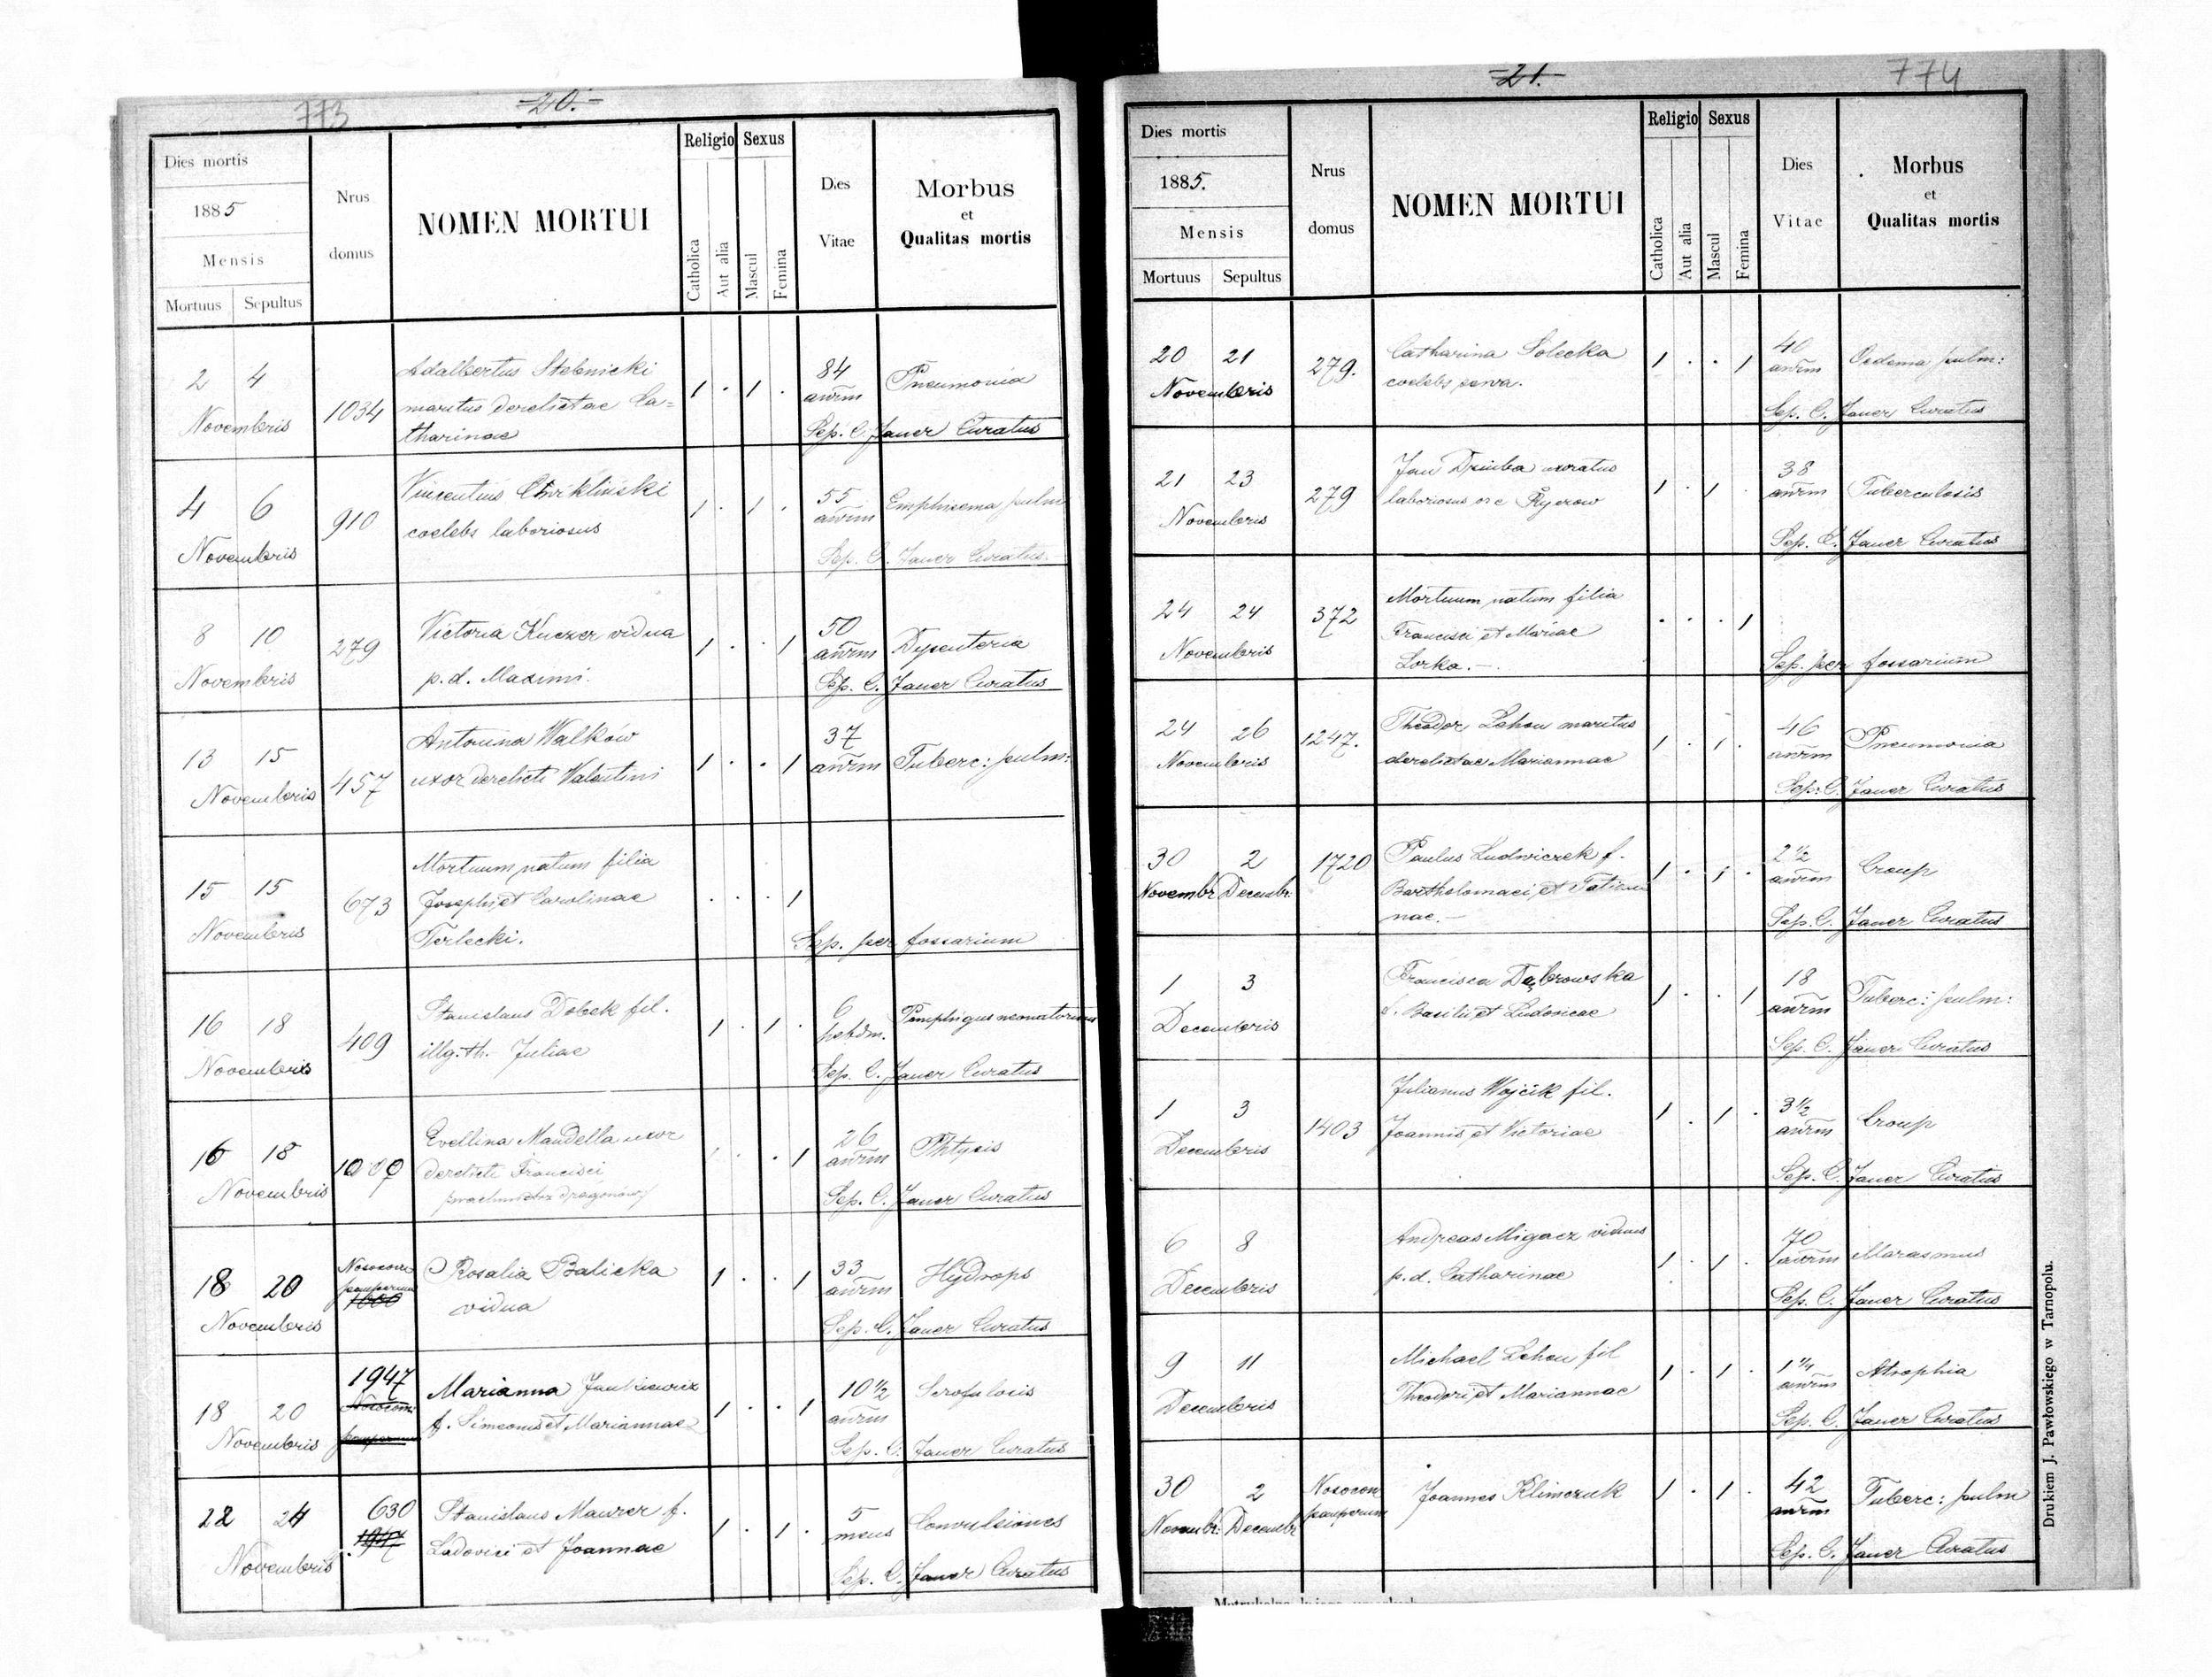 773
-20.-
Dies mortis
1885
Mensis
Mortuus Sepultus
Nrus domus
NOMEN MORTUI
Religio
Catholica
Aut alia
Sexus
Mascul
Femina
Dies Vitae
Morbus
et
Qualitas mortis
2 4
Novembris
1034
Adalbertus Stebnicki
maritus derelictae Ca=
tharinae
1 . 1 .
84
annrm
Pneumonia
Sep. C. Jauer Curatus
4 6
Novembris
910
Vincentius Chwikliński
coelebs laboriosus
1 . 1 .
55
annrm
Emphisema pulm
Sep. C. Jauer Curatus.
8 10
Novembris
279
Victoria Kuczer vidua
p.d. Maximi.
1 . . 1
50
annrm
Dysenteria
Sep. C. Jauer Curatus
13 15
Novembris
457
Antonina Walków
uxor derelicti Valentini
1 . . 1
37
annrm
Tuberc: pulm:
15 15
Novembris
673
Mortuum natum filia
Josephi et Carolinae
Terlecki.
. . . 1
Sep. per fossarium
16 18
Novembris
409
Stanislaus Dobek fil.
illg: th. Juliae
1 . 1 .
6
hebdm.
Pemphigus neonatorum
Sep. C. Jauer Curatus
16 18
Novembris
Evellina Mandella uxor
derelicti Francisci
. . 1
26
annrm
Phtysis
Sep. C. Jauer Curatus
18 20
Novembris
pauperum
Rosalia Balicka
vidua
1 . . 1
33
annrm
Hydrops
Sep. C. Jauer Curatus
18 20
Novembris
1947
Marianna Jankiewicz
f. Simeonis et Mariannae
1 . . 1
10 1/2
annrm
Scrofulosis
Sep. C. Jauer Curatus
22 24
Novembris
630
1947
Stanislaus Maurer f.
Ludovici et Joannae
1 . 1 .
5
mens
Convulsiones
Sep. C. Jauer Curatus
774
-21.-
Dies mortis
1885.
Mensis
Mortuus Sepultus
Nrus domus
NOMEN MORTUI
Religio
Catholica
Aut alia
Sexus
Mascul
Femina
Dies Vitae
Morbus
et
Qualitas mortis
20 21
Novembris
279.
Catharina Solecka
coelebs serva.
1 . . 1
40
annrm
Oedema pulm:
Sep. C. Jauer Curatus
21 23
Novembris
279
Jan Dziuba uxoratus
laboriosus
1 . 1 .
38
annrm
Tuberculosis
Sep. C. Jauer Curatus
24 24
Novembris
372
Mortuum natum filia
Francisci et Mariae
Lorka.-
. . . 1
Sep. per fossarium
24 26
Novembris
1247.
Theodor Lehou maritus
derelictae Mariannae
1 . 1 .
46
annrm
Pneumonia
Sep: C. Jauer Curatus
30 2
Novembr. Decembr:
1720
Paulus Ludwiczek f.
Bartholomaei et Tatian
nae.-
1 . 1 .
2 1/2
annrm
Croup
Sep. C. Jauer Curatus
1 3
Decembris
Francisca Dąbrowska
f. Basilii et Ludovicae
1 . . 1
18
annrm
Tuberc: pulm:
Sep. C. Jauer Curatus
1 3
Decembris
1403
Julianus Wojcik fil.
Joannis et Victoriae
1 . 1 .
3 1/2
annrm
Croup
Sep. C. Jauer Curatus
6 8
Decembris
Andreas Migacz viduus
p.d. Catharinae
1 . 1 .
70
annrm
Marasmus
Sep. C. Jauer Curatus
9 11
Decembris
Michael Lehou fil
Theodori et Mariannae
1 . 1 .
1 1/4
annrm
Atrophia
Sep. C. Jauer Curatus
30 2
Novembr: Decembr
Nosocom
pauperum
Joannes Klimczuk
1 . 1 .
42
annrm
Tuberc: pulm
Sep. C. Jauer Curatus
Drukiem J. Pawłowskiego w Tarnopolu.